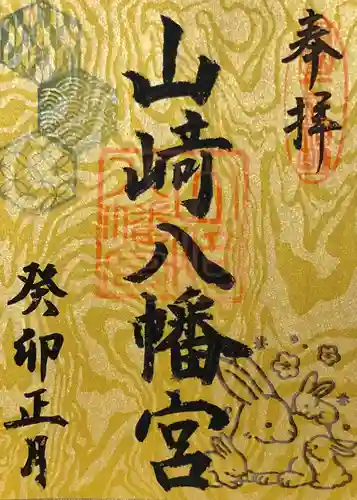 奉拝
山﨑八幡宮
癸卯正月